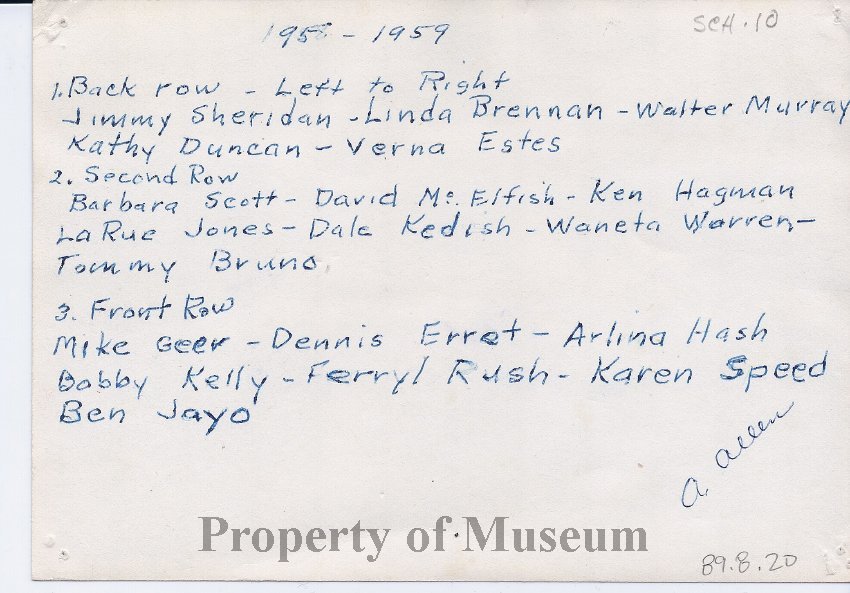 1958 - 1959
SCH.10
1. Back row - Left to Right
Jimmy Sheridan - Linda Brennan - Walter Murray
Kathy Duncan - Verna Estes
2. Second Row
Barbara Scott - David Mc. Elfish - Ken Hagman
LaRue Jones - Dale Kedish - Waneta Warren -
Tommy Bruno.
3. Front Row
Mike Geer - Dennis Erret - Arlina Hash
Bobby Kelly - Ferryl Rush - Karen Speed
Ben Jayo
A. Allen
Property of Museum
89.8.20